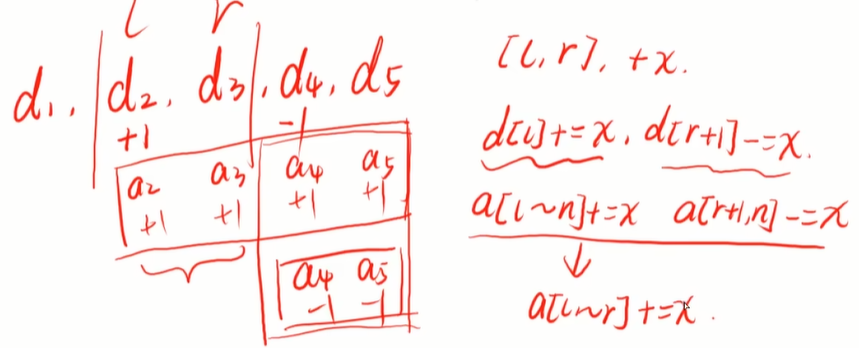 l r
d₁, | d₂, d₃ |, d₄, d₅
+1 -1
a₂ a₃ a₄ a₅
+1 +1 +1 +1
a₄ a₅
-1 -1
[l, r], +x.
d[l]+=x, d[r+1]-=x.
a[l~n]+=x a[r+1,n]-=x
↓
a[l~r]+=x.